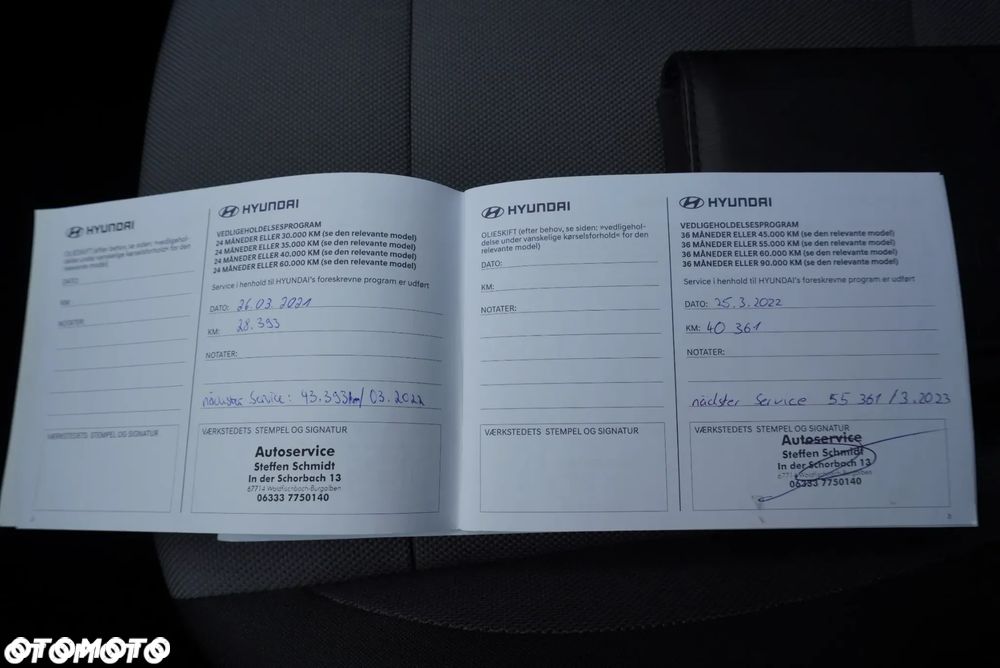 HYUNDAI
OLIESKIFT (efter behov, se siden: »vedligehol-
delse under vanskelige kørselsforhold« for den
relevante model)
DATO:
KM:
NOTATER:
VÆRKSTEDETS STEMPEL OG SIGNATUR
HYUNDAI
VEDLIGEHOLDELSESPROGRAM
24 MÅNEDER ELLER 30.000 KM (se den relevante model)
24 MÅNEDER ELLER 35.000 KM (se den relevante model)
24 MÅNEDER ELLER 40.000 KM (se den relevante model)
24 MÅNEDER ELLER 60.000 KM (se den relevante model)
Service i henhold til HYUNDAI's foreskrevne program er udført
DATO: 26.03.2021
KM: 28.393
NOTATER:
nächster Service: 43.393km/03.2022
VÆRKSTEDETS STEMPEL OG SIGNATUR
Autoservice
Steffen Schmidt
In der Schorbach 13
67714 Waldfischbach-Burgalben
06333 7750140
HYUNDAI
OLIESKIFT (efter behov, se siden: »vedligehol-
delse under vanskelige kørselsforhold« for den
relevante model)
DATO:
KM:
NOTATER:
VÆRKSTEDETS STEMPEL OG SIGNATUR
HYUNDAI
VEDLIGEHOLDELSESPROGRAM
36 MÅNEDER ELLER 45.000 KM (se den relevante model)
36 MÅNEDER ELLER 55.000 KM (se den relevante model)
36 MÅNEDER ELLER 60.000 KM (se den relevante model)
36 MÅNEDER ELLER 90.000 KM (se den relevante model)
Service i henhold til HYUNDAI's foreskrevne program er udført
DATO: 25.3.2022
KM: 40 361
NOTATER:
nächster Service 55 361/3.2023
VÆRKSTEDETS STEMPEL OG SIGNATUR
Autoservice
Steffen Schmidt
In der Schorbach 13
67714 Waldfischbach-Burgalben
06333 7750140
OTOMOTO